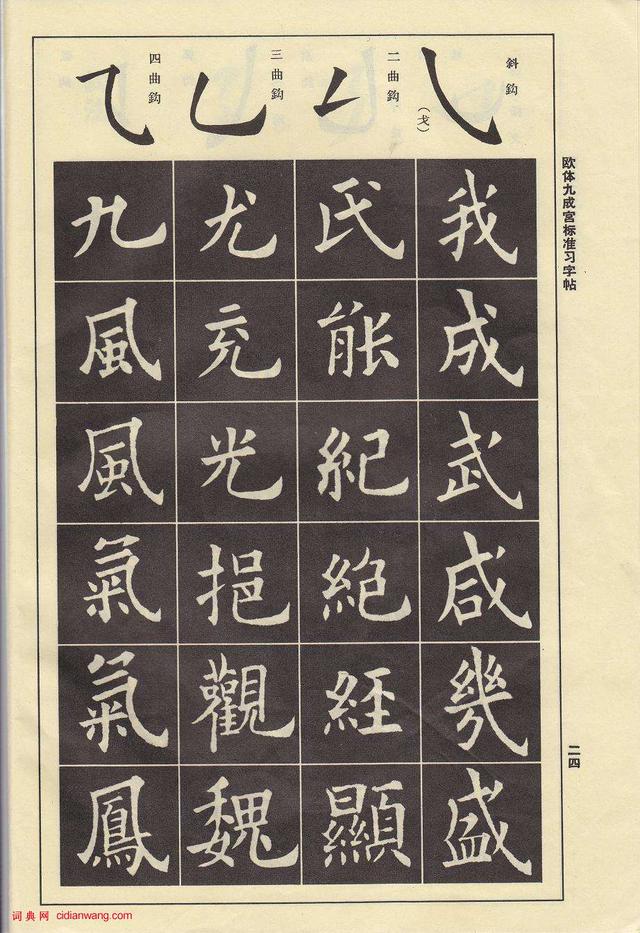 欧体九成宫标准习字帖
二四
斜鈎
(戈)
二曲鈎
三曲鈎
四曲鈎
我成武咸幾盛
氏能紀絶經顯
尤充光挹觀魏
九風風氣氣鳳
词典网 cidianwang.com